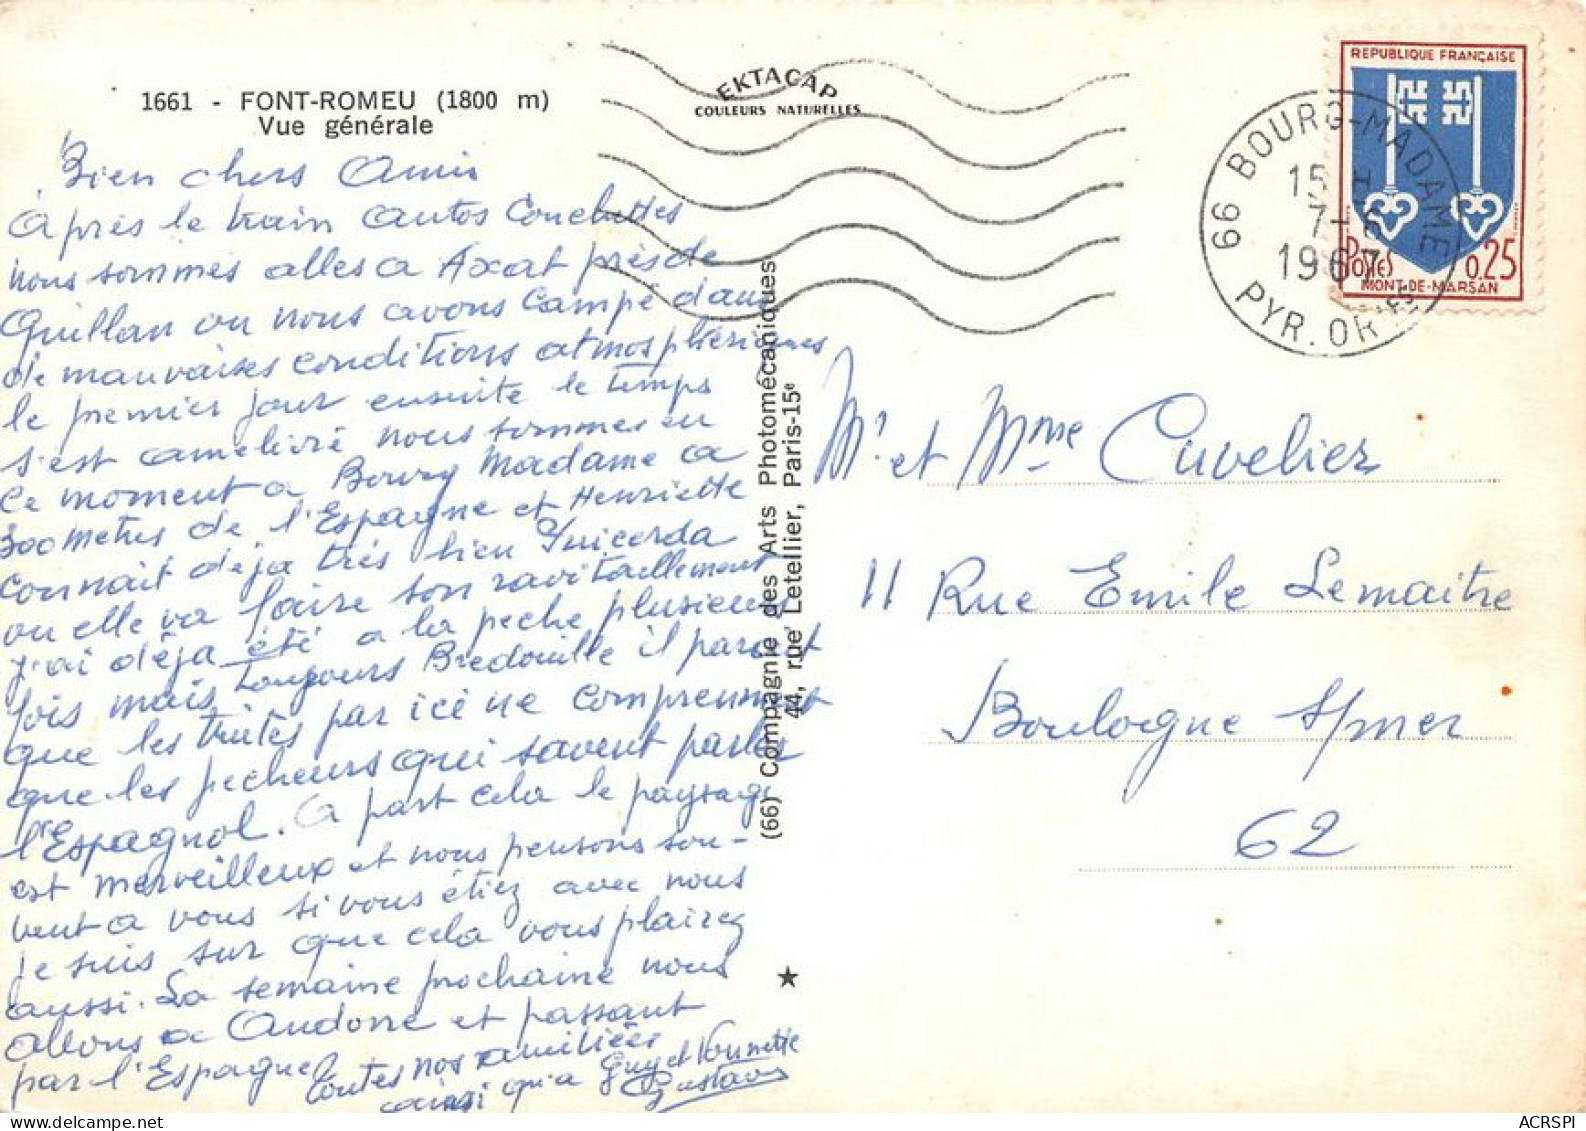 1661 - FONT-ROMEU (1800 m)
Vue générale
EKTACAP
COULEURS NATURELLES
Bien chers Amis
après le train autos Couchettes
nous sommes alles a Axat près de
Quillan ou nous avons Campé dans
de mauvaises conditions atmosphériques
le premier jour ensuite le temps
s'est amelivré nous sommes en
ce moment a Bourg Madame a
300 metres de l'Espagne et Henriette
connait déja très bien Puicerda
ou elle va faire son ravitaillement
j'ai déja été a la peche plusieurs
fois mais toujours Bredouille il parait
que les truites par ici ne comprennent
que les pecheurs qui savent parler
l'Espagnol. A part cela le paysage
est merveilleux et nous pensons sou-
vent a vous si vous étiez avec nous
je suis sur que cela vous plairez
aussi. La semaine prochaine nous
allons a Andorre et passant
par l'Espagne
toutes nos amitiées
ainsi qu'a Guy et Nounette
Gustave
(66) Compagnie des Arts Photomécaniques
44, rue Letellier, Paris-15e
REPUBLIQUE FRANÇAISE
POSTES 0,25
MONT-DE-MARSAN
66 BOURG-MADAME
15 H
7-6
1967
PYR. OR<sup>LES</sup>
Mr et Mme Cuvelier
11 Rue Emile Lemaitre
Boulogne s/mer
62
★
ACRSPI